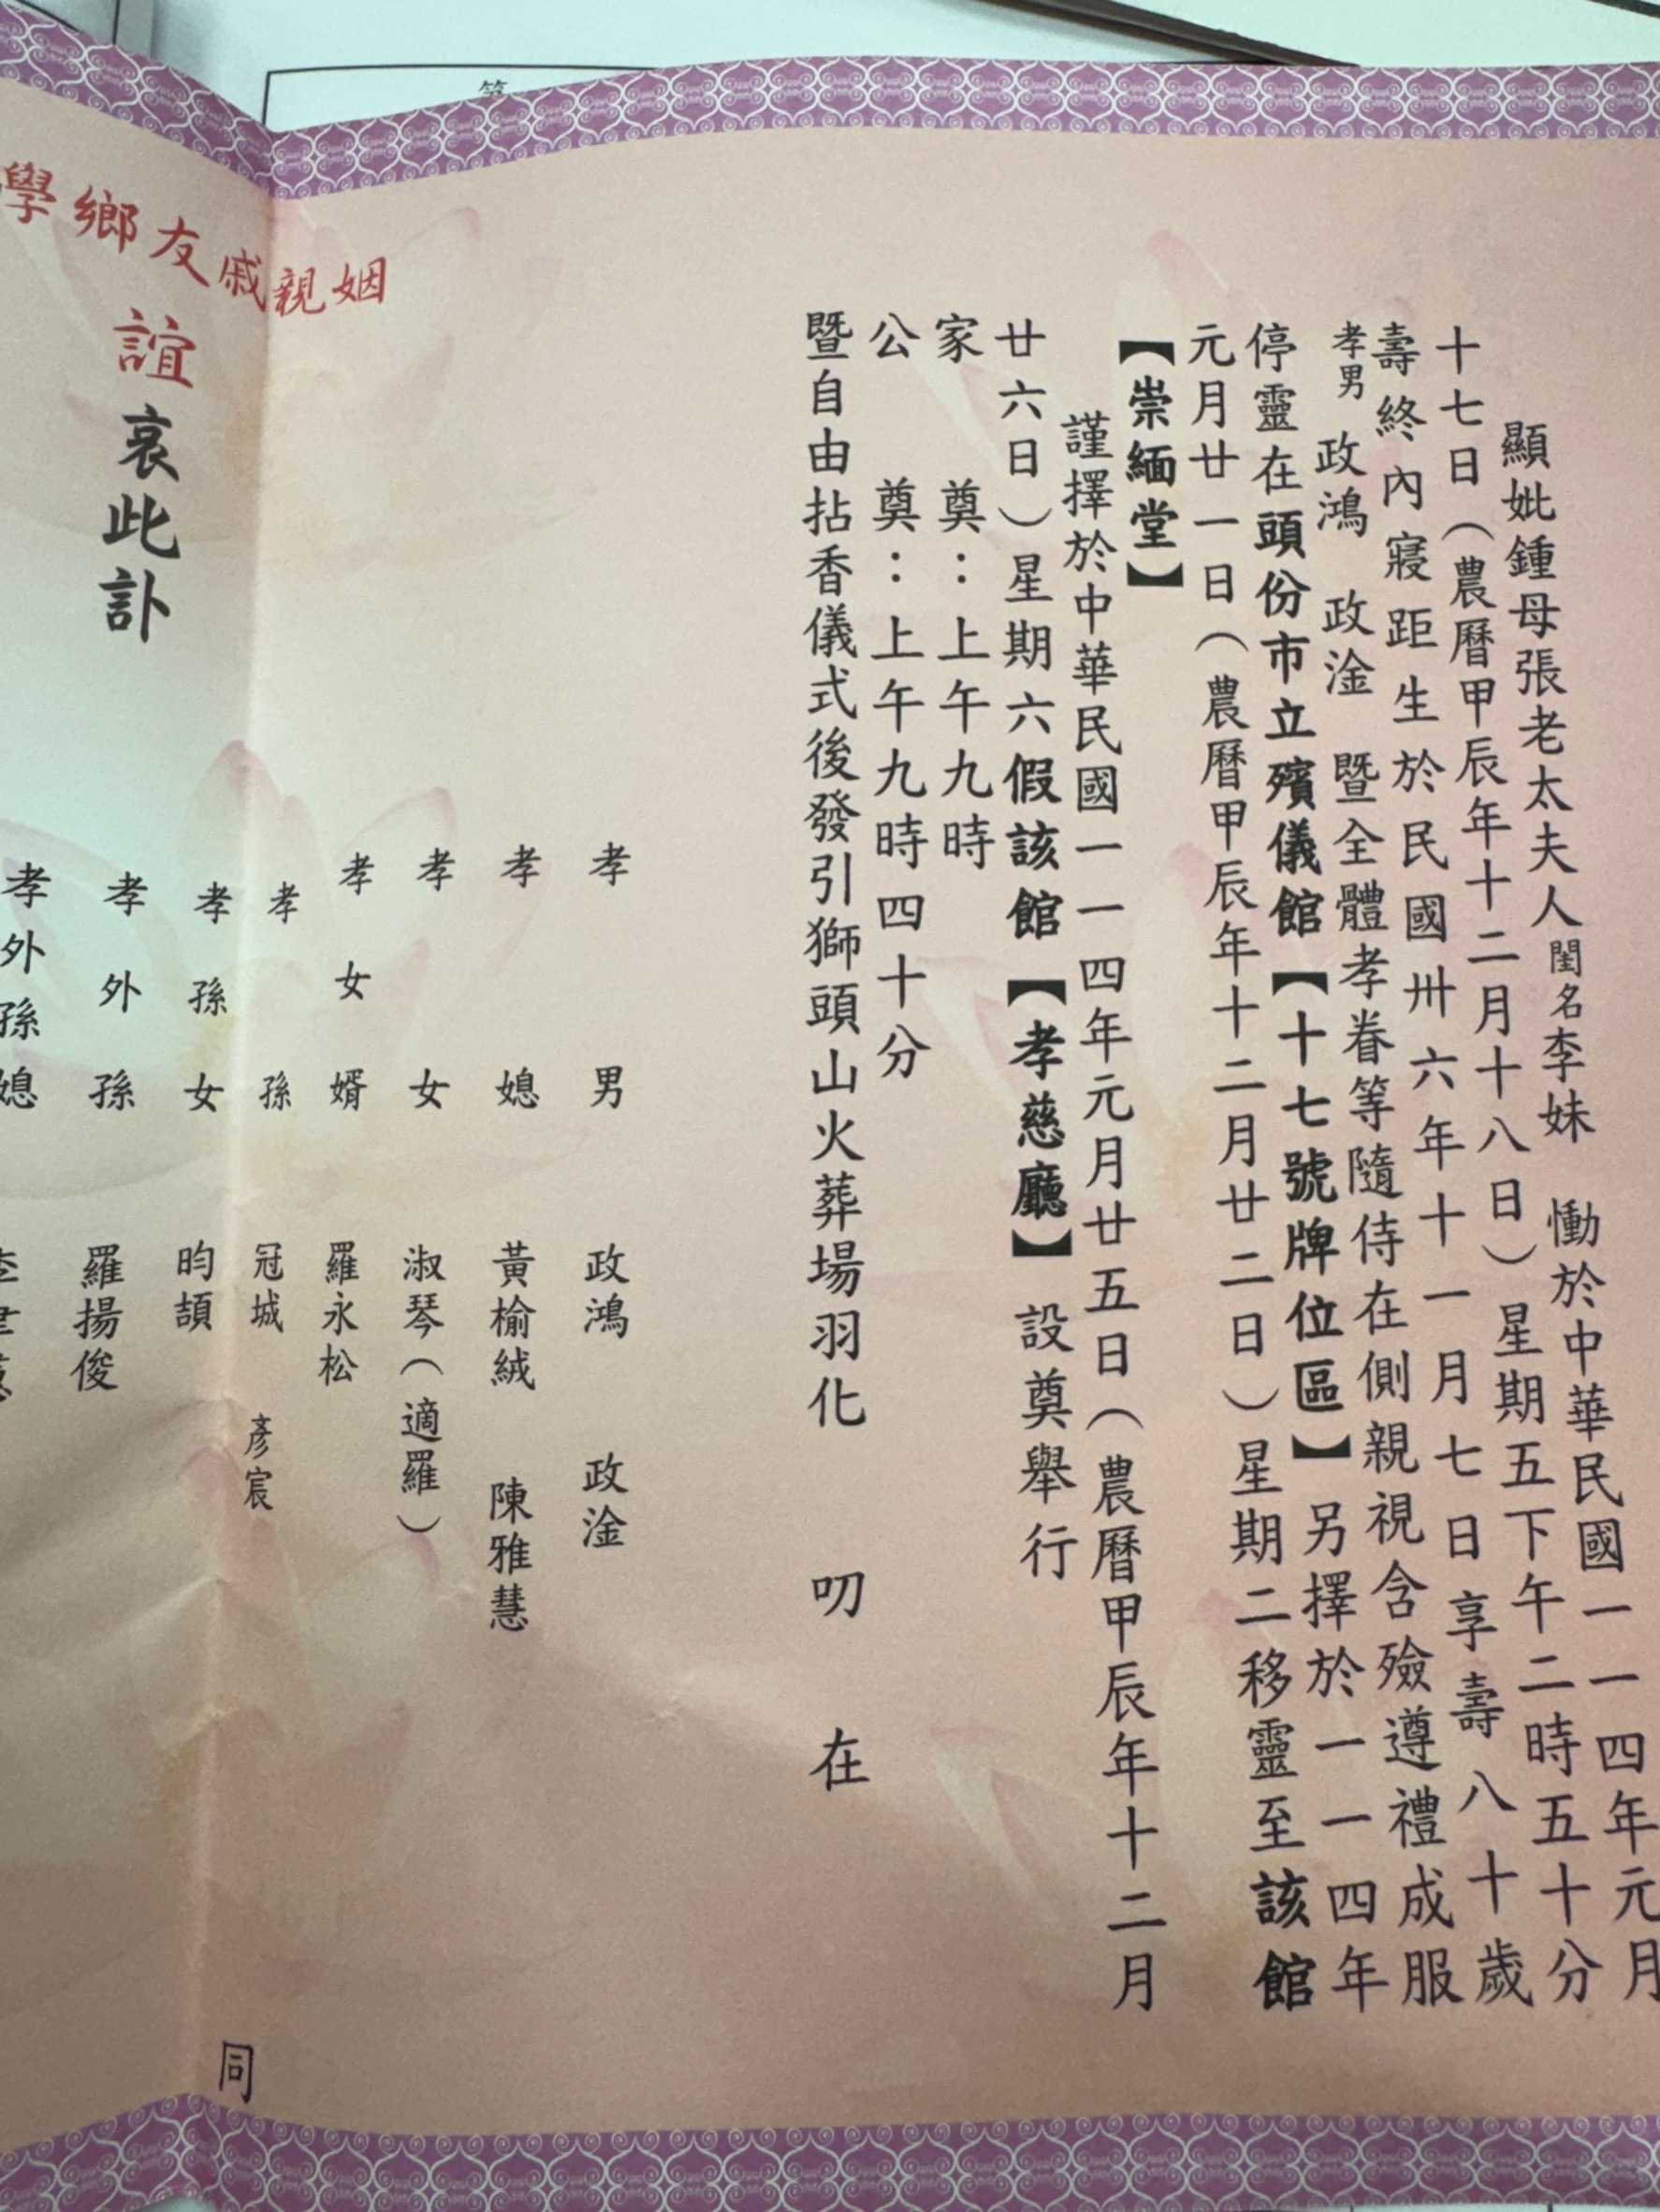 顯妣鍾母張老太夫人閨名李妹　慟於中華民國一一四年元月
十七日（農曆甲辰年十二月十八日）星期五下午二時五十分
壽終內寢距生於民國卅六年十一月七日享壽八十歲
孝男　政鴻　政淦　暨全體孝眷等隨侍在側親視含殮遵禮成服
停靈在頭份市立殯儀館【十七號牌位區】另擇於一一四年
元月廿一日（農曆甲辰年十二月廿二日）星期二移靈至該館
【崇緬堂】
謹擇於中華民國一一四年元月廿五日（農曆甲辰年十二月
廿六日）星期六假該館【孝慈廳】設奠舉行
家　奠：上午九時
公　奠：上午九時四十分
暨自由拈香儀式後發引獅頭山火葬場羽化　叨　在
姻親戚友鄉學
誼哀此訃
孝男　政鴻　政淦
孝媳　黃榆絨　陳雅慧
孝女　淑琴（適羅）
孝女婿　羅永松
孝孫　冠城　彥宸
孝孫女　昀頡
孝外孫　羅揚俊
孝外孫媳
同